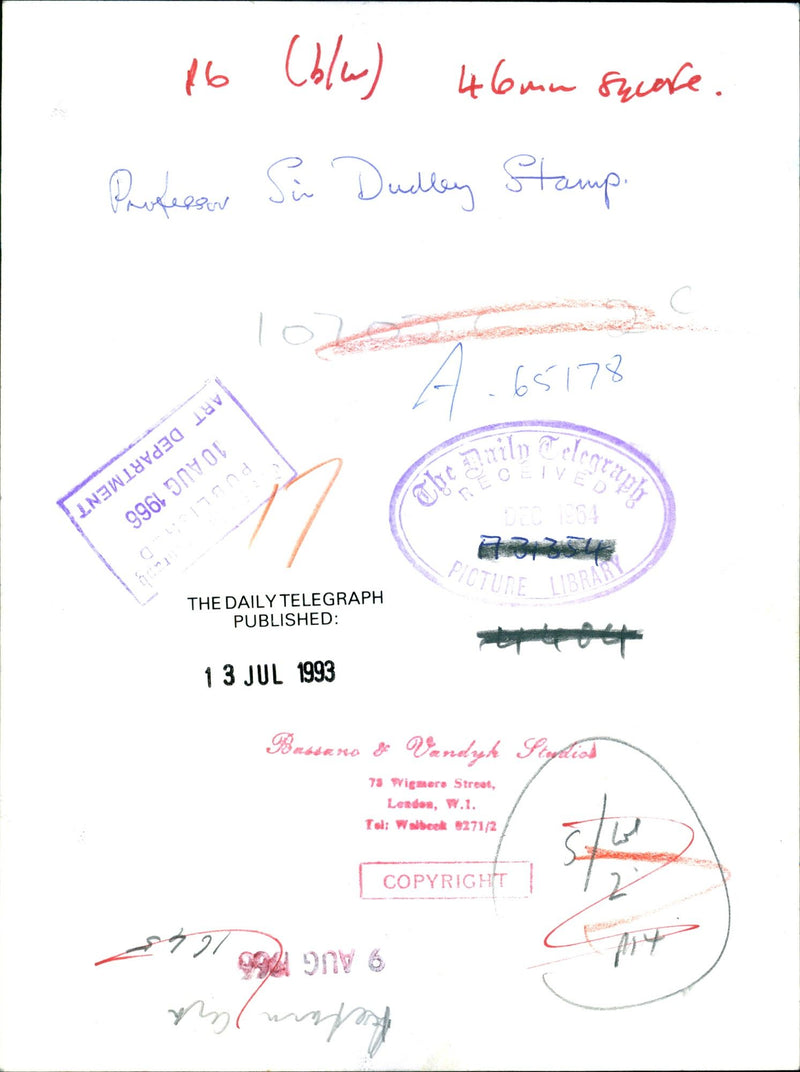 (b/w) 46mm square.
Professor Sir Dudley Stamp.
A. 65178
ART DEPARTMENT
10 AUG 1966
PUBLISHED
The Daily Telegraph
RECEIVED
DEC 1964
PICTURE LIBRARY
THE DAILY TELEGRAPH
PUBLISHED:
13 JUL 1993
Bassano & Vandyk Studios
Wigmore Street,
London, W.1.
Tel: Welbeck 8271/2
COPYRIGHT
S/W
2
9 AUG 1966